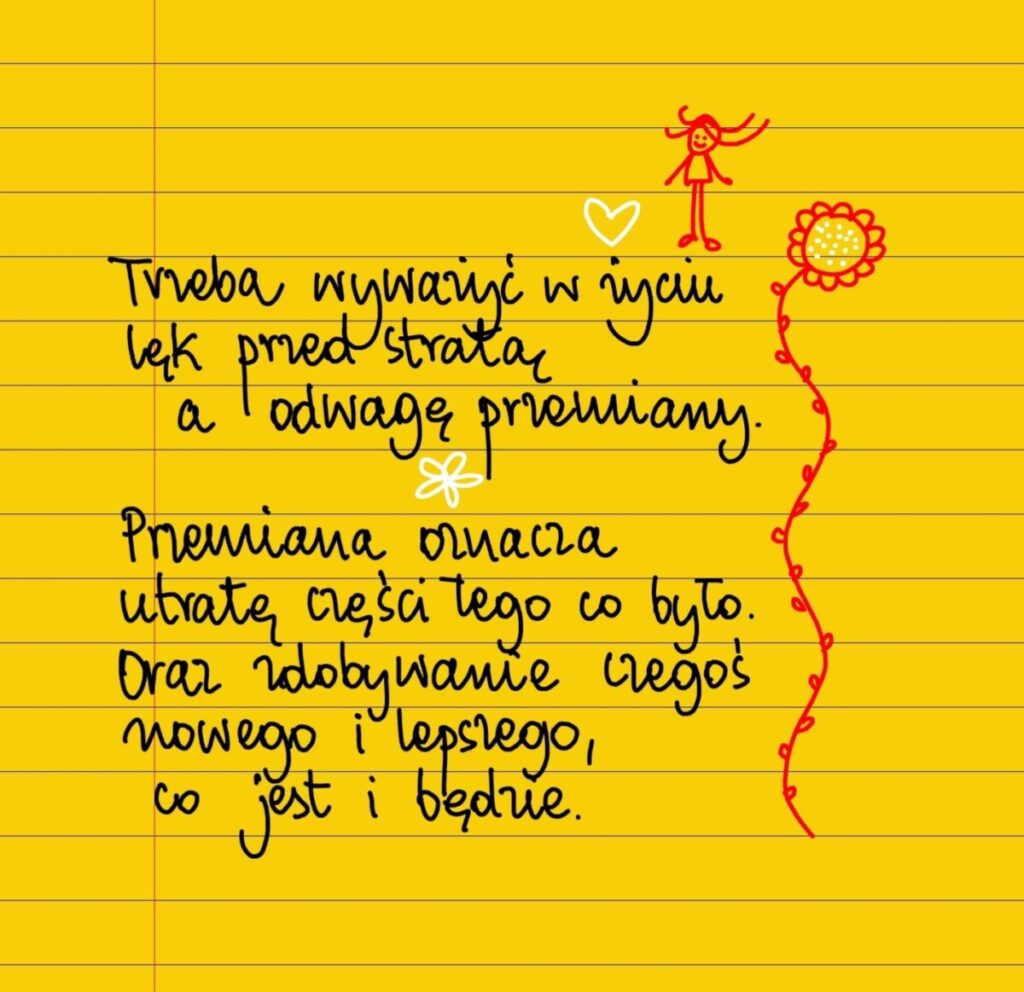 Trzeba wyważyć w życiu
lęk przed stratą
a odwagę przemiany.
Przemiana oznacza
utratę części tego co było.
Oraz zdobywanie czegoś
nowego i lepszego,
co jest i będzie.